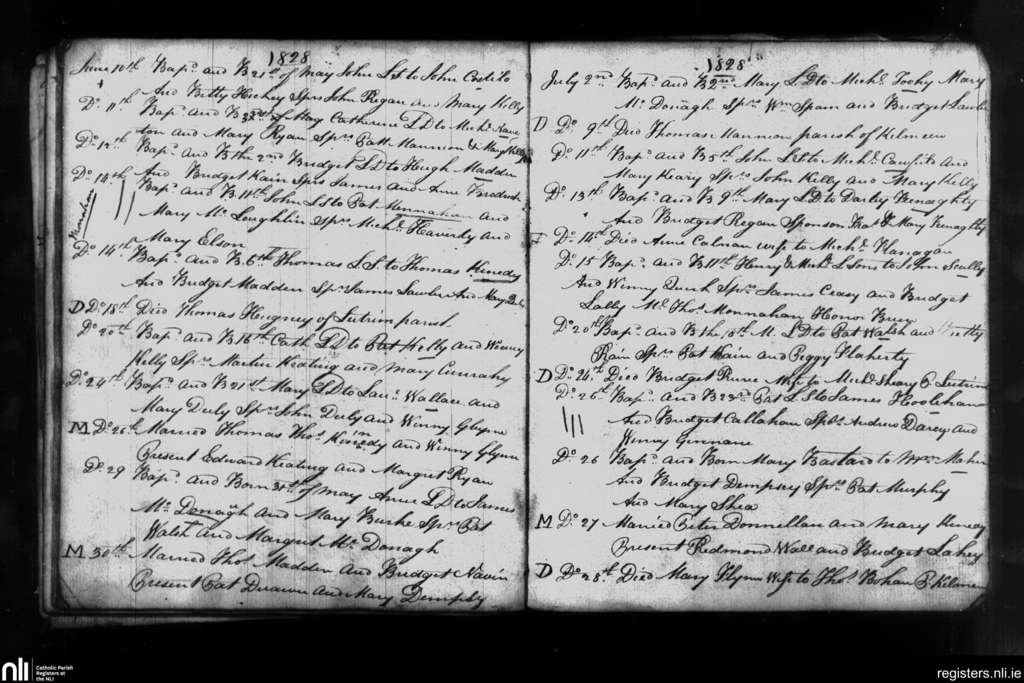 1828
June 10th Bapd. and B 21st of May John LS to John Costilo
And Betty Hickey Sprs John Regan and Mary Kelly
Do. 11th Bapd. and B 23rd of May Catherine LD to Michl.
and Mary Ryan Sprs Patt Hannion & Mary Kelly
Do. 12th Bapd. and B the 2nd Bridget LD to Hugh Madden
And Bridget Kain Sprs James and Anne
Do. 14th Bapd. and B 11th John LS to Pat Monnahan and
Monahan
Mary Mc Loughlin Sprs Michl. Haverty and
Mary Elson
Do. 14th Bapd. and B. 6th Thomas L.S. to Thomas Kenedy
And Bridget Madden Sprs James Lawler And Mary
D Do. 18th Died Thomas Heagney of Lutrim parish
Do. 20th Bapd. and B 16th Cath LD to Pat Kelly and Winny
Kelly Sprs Martin Keating and Mary Cunrahy
Do. 24th Bapd. and B 21st Mary LD to Lau. Wallace and
Mary Duly Sprs John Duly and Winny Glynn
M Do. 26th Married Thomas Thos. Kennedy and Winny Glynn
Present Edward Keating and Margret Ryan
Do. 29 Bapd. and Born 30th of may Anne LD to James
Mc Donagh and Mary Burke Sprs Pat
Walsh and Margret Mc Donagh
M 30th Married Thos Madden and Bridget Navin
Present Pat and Mary Dempsy
1828
July 2nd Bapd. and B 2nd Mary LD to Michl. Toohy Mary
Mc Donagh Sprs Wm Spain and Bridget Lawler
D Do. 9th Died Thomas Hannion parish of Kilmeen
Do. 11th Bapd. and B 5th John LS to Michl. and
Mary Keary Sprs John Kelly and Mary Kelly
Do. 13th Bapd. and B 9th Mary LD to Darley Fenaghty
And Bridget Regan Sponsors Thos. & Mary Fenaghty
Do. 14th Died Anne Calnan wife to Michl. Flanagan
Do. 15 Bapd. and B. 11th Henry & Michl. L Sons to John Scully
And Winny Quirk Sprs James Ceasy and Bridget
Lally Mc Thos. Monnahan Honor
Do. 20th Bapd. and B the 18th M. LD to Pat Walsh and
Kain Sprs Pat Kain and Peggy Flaherty
D Do. 24th Died Bridget wife to Michl. Sheary P. Lutrim
Do. 26th Bapd. and B 23rd Pat LS to James Hoolehan
And Bridget Callahan Sprs Andrew Darcy and
Winny Ginnane
Do. 26 Bapd. and Born Mary Bastard to Wm. Maher
And Bridget Dempsey Sprs Pat Murphy
And Mary Shea
M Do. 27 Married Peter Donnellan and Mary Kenedy
Present Redmond Wall and Bridget Lahey
D Do. 28th Died Mary Flynn Wife to Thos. Bohan P. Kilmeen
nli Catholic Parish
Registers at
the NLI
registers.nli.ie